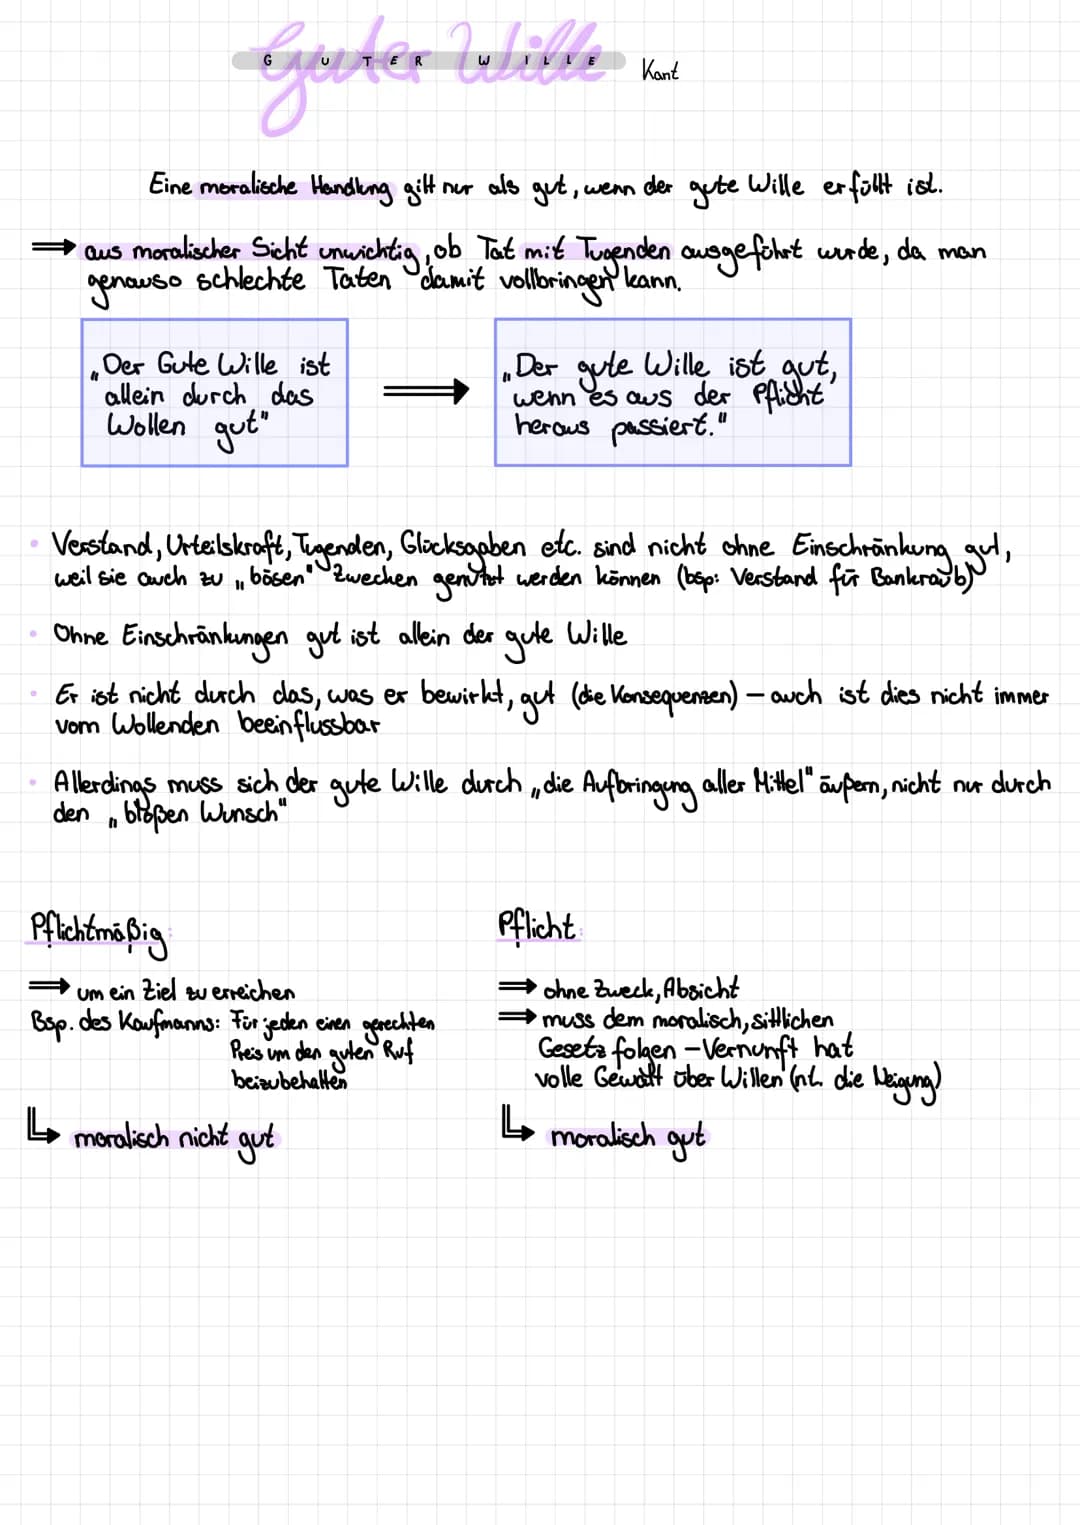 Guter Wille
GUTER WILLE
Kant
Eine moralische Handlung gilt nur als gut, wenn der gute Wille erfüllt ist.
⟹ aus moralischer Sicht unwichtig, ob Tat mit Tugenden ausgeführt wurde, da man
genauso schlechte Taten damit vollbringen kann.
„Der Gute Wille ist
allein durch das
Wollen gut"
⟹
„Der gute Wille ist gut,
wenn es aus der Pflicht
heraus passiert."
• Verstand, Urteilskraft, Tugenden, Glücksgaben etc. sind nicht ohne Einschränkung gut,
weil sie auch zu „bösen" Zwecken genutzt werden können (bsp: Verstand für Bankraub)
• Ohne Einschränkungen gut ist allein der gute Wille
• Er ist nicht durch das, was er bewirkt, gut (die Konsequenzen) – auch ist dies nicht immer
vom Wollenden beeinflussbar
• Allerdings muss sich der gute Wille durch „die Aufbringung aller Mittel" äußern, nicht nur durch
den „bloßen Wunsch"
Pflichtmäßig:
⟹ um ein Ziel zu erreichen
Bsp. des Kaufmanns: Für jeden einen gerechten
Preis um den guten Ruf
beizubehalten
↳ moralisch nicht gut
Pflicht:
⟹ ohne Zweck, Absicht
⟹ muss dem moralisch, sittlichen
Gesetz folgen – Vernunft hat
volle Gewalt über Willen (nt. die Neigung)
↳ moralisch gut